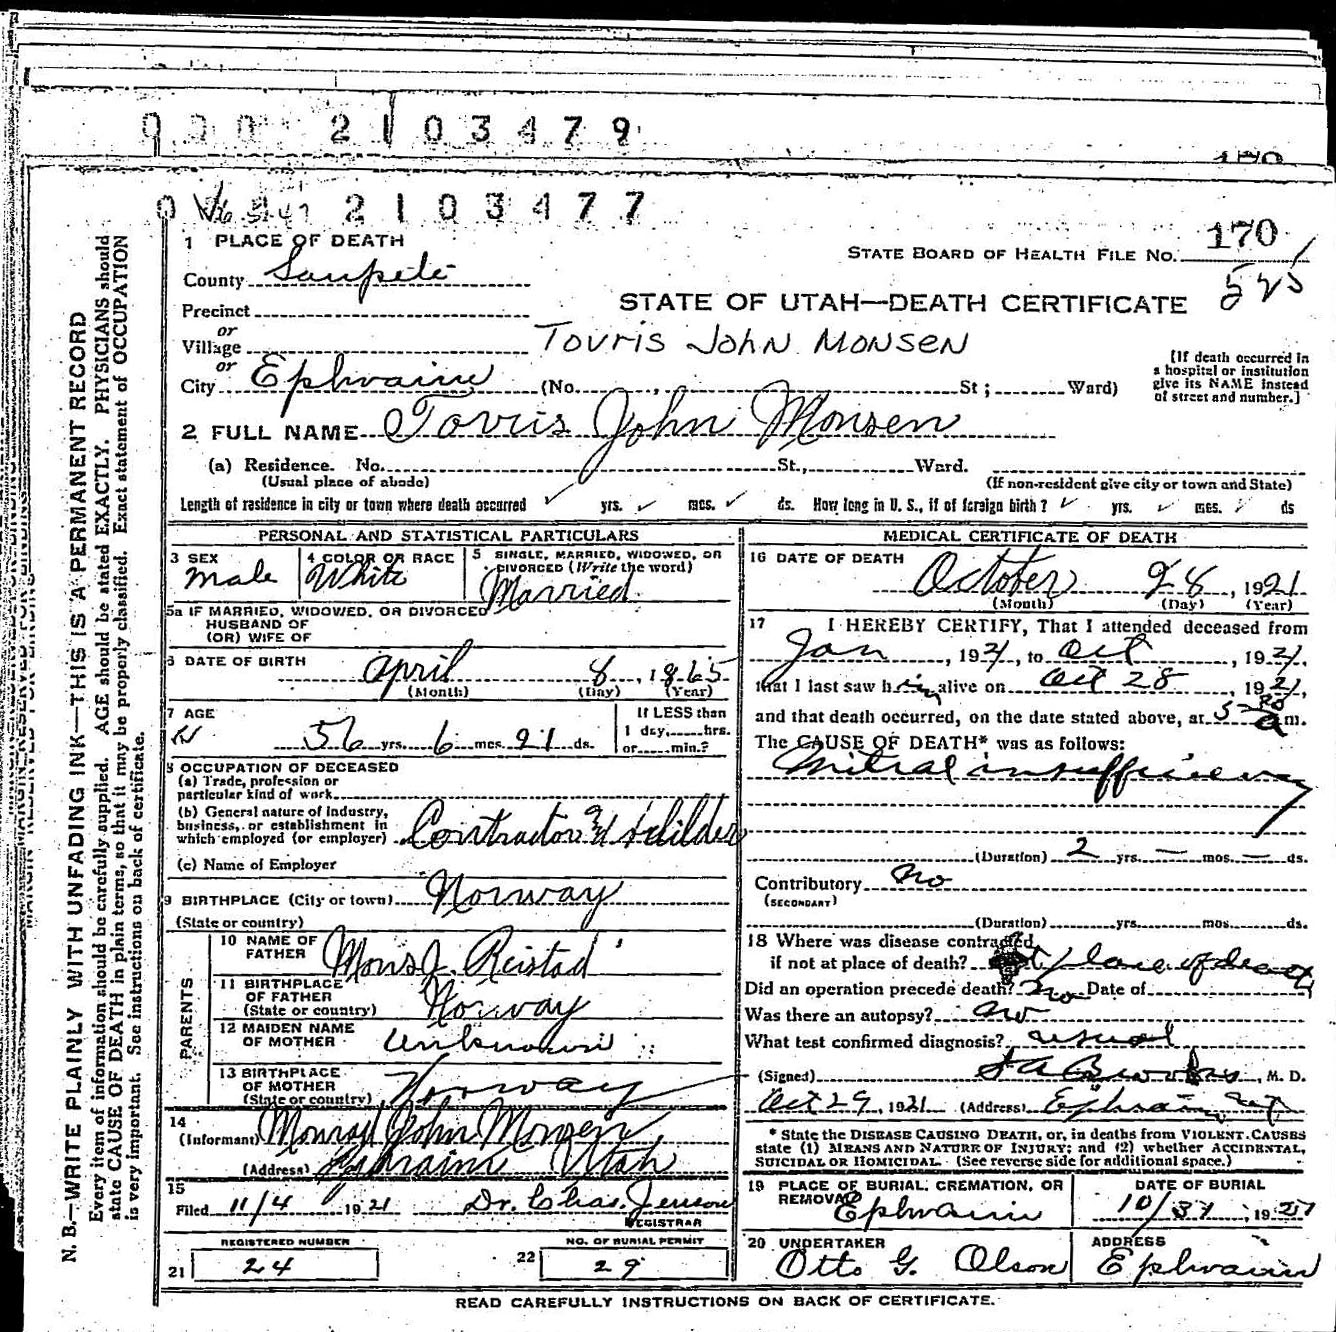 2103479
170
2103477
1 PLACE OF DEATH
STATE BOARD OF HEALTH FILE NO. 170
County Sanpete
525
STATE OF UTAH—DEATH CERTIFICATE
Precinct
or
Village
TOVRIS JOHN MONSEN
or
City Ephraim (No. , St; Ward)
[If death occurred in
a hospital or institution
give its NAME instead
of street and number.]
2 FULL NAME Tovris John Monsen
(a) Residence. No. St., Ward.
(Usual place of abode)
(If non-resident give city or town and State)
Length of residence in city or town where death occurred yrs. mos. ds. How long in U. S., if of foreign birth? yrs. mes. ds
PERSONAL AND STATISTICAL PARTICULARS
3 SEX
Male
4 COLOR OR RACE
White
5 SINGLE, MARRIED, WIDOWED, OR
DIVORCED (Write the word)
Married
5a IF MARRIED, WIDOWED, OR DIVORCED
HUSBAND OF
(OR) WIFE OF
6 DATE OF BIRTH
April 8, 1865
(Month) (Day) (Year)
7 AGE
56 yrs. 6 mos. 21 ds.
If LESS than
1 day, hrs.
or min.?
8 OCCUPATION OF DECEASED
(a) Trade, profession or
particular kind of work
(b) General nature of industry,
business, or establishment in
which employed (or employer) Contractor & builder
(c) Name of Employer
9 BIRTHPLACE (City or town) Norway
(State or country)
PARENTS
10 NAME OF
FATHER Mons J. Reistad
11 BIRTHPLACE
OF FATHER
(State or country) Norway
12 MAIDEN NAME
OF MOTHER unknown
13 BIRTHPLACE
OF MOTHER
(State or country) Norway
14
(Informant) Monrad John Monsen
(Address) Ephraim Utah
15
Filed 11/4 1921 Dr. Chas. Jenson
REGISTRAR
REGISTERED NUMBER
21 24
NO. OF BURIAL PERMIT
22 29
MEDICAL CERTIFICATE OF DEATH
16 DATE OF DEATH
October 28, 1921
(Month) (Day) (Year)
17 I HEREBY CERTIFY, That I attended deceased from
Jan, 1921, to Oct, 1921,
that I last saw him alive on Oct 28, 1921,
and that death occurred, on the date stated above, at 5 a m.
The CAUSE OF DEATH* was as follows:
Mitral insufficiency
(Duration) 2 yrs. — mos. — ds.
Contributory no
(SECONDARY)
(Duration) yrs. mos. ds.
18 Where was disease contracted
if not at place of death? at place of death
Did an operation precede death? no Date of
Was there an autopsy? no
What test confirmed diagnosis? usual
(Signed) , M. D.
Oct 29, 1921 (Address) Ephraim, Ut
* State the DISEASE CAUSING DEATH, or, in deaths from VIOLENT CAUSES
state (1) MEANS AND NATURE OF INJURY; and (2) whether ACCIDENTAL,
SUICIDAL OR HOMICIDAL. (See reverse side for additional space.)
19 PLACE OF BURIAL, CREMATION, OR
REMOVAL Ephraim
DATE OF BURIAL
10/31, 1921
20 UNDERTAKER
Otto G. Olson
ADDRESS
Ephraim
READ CAREFULLY INSTRUCTIONS ON BACK OF CERTIFICATE.
N. B.—WRITE PLAINLY WITH UNFADING INK—THIS IS A PERMANENT RECORD
Every item of information should be carefully supplied. AGE should be stated EXACTLY. PHYSICIANS should
state CAUSE OF DEATH in plain terms, so that it may be properly classified. Exact statement of OCCUPATION
is very important. See instructions on back of certificate.